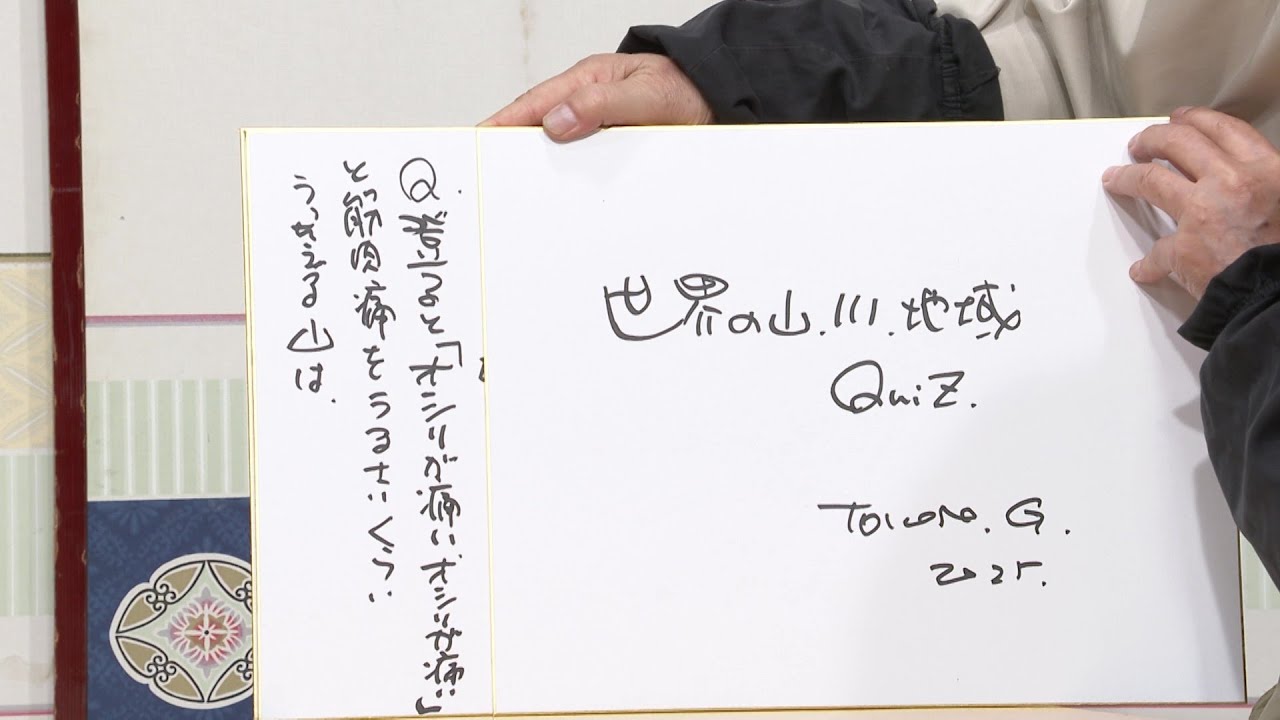 世界の山.川.地域
QuiZ.
G.
2025.
Q.登ると「オシリが痛いオシリが痛い」
と筋肉痛をうるさいくらい
うったえる山は.